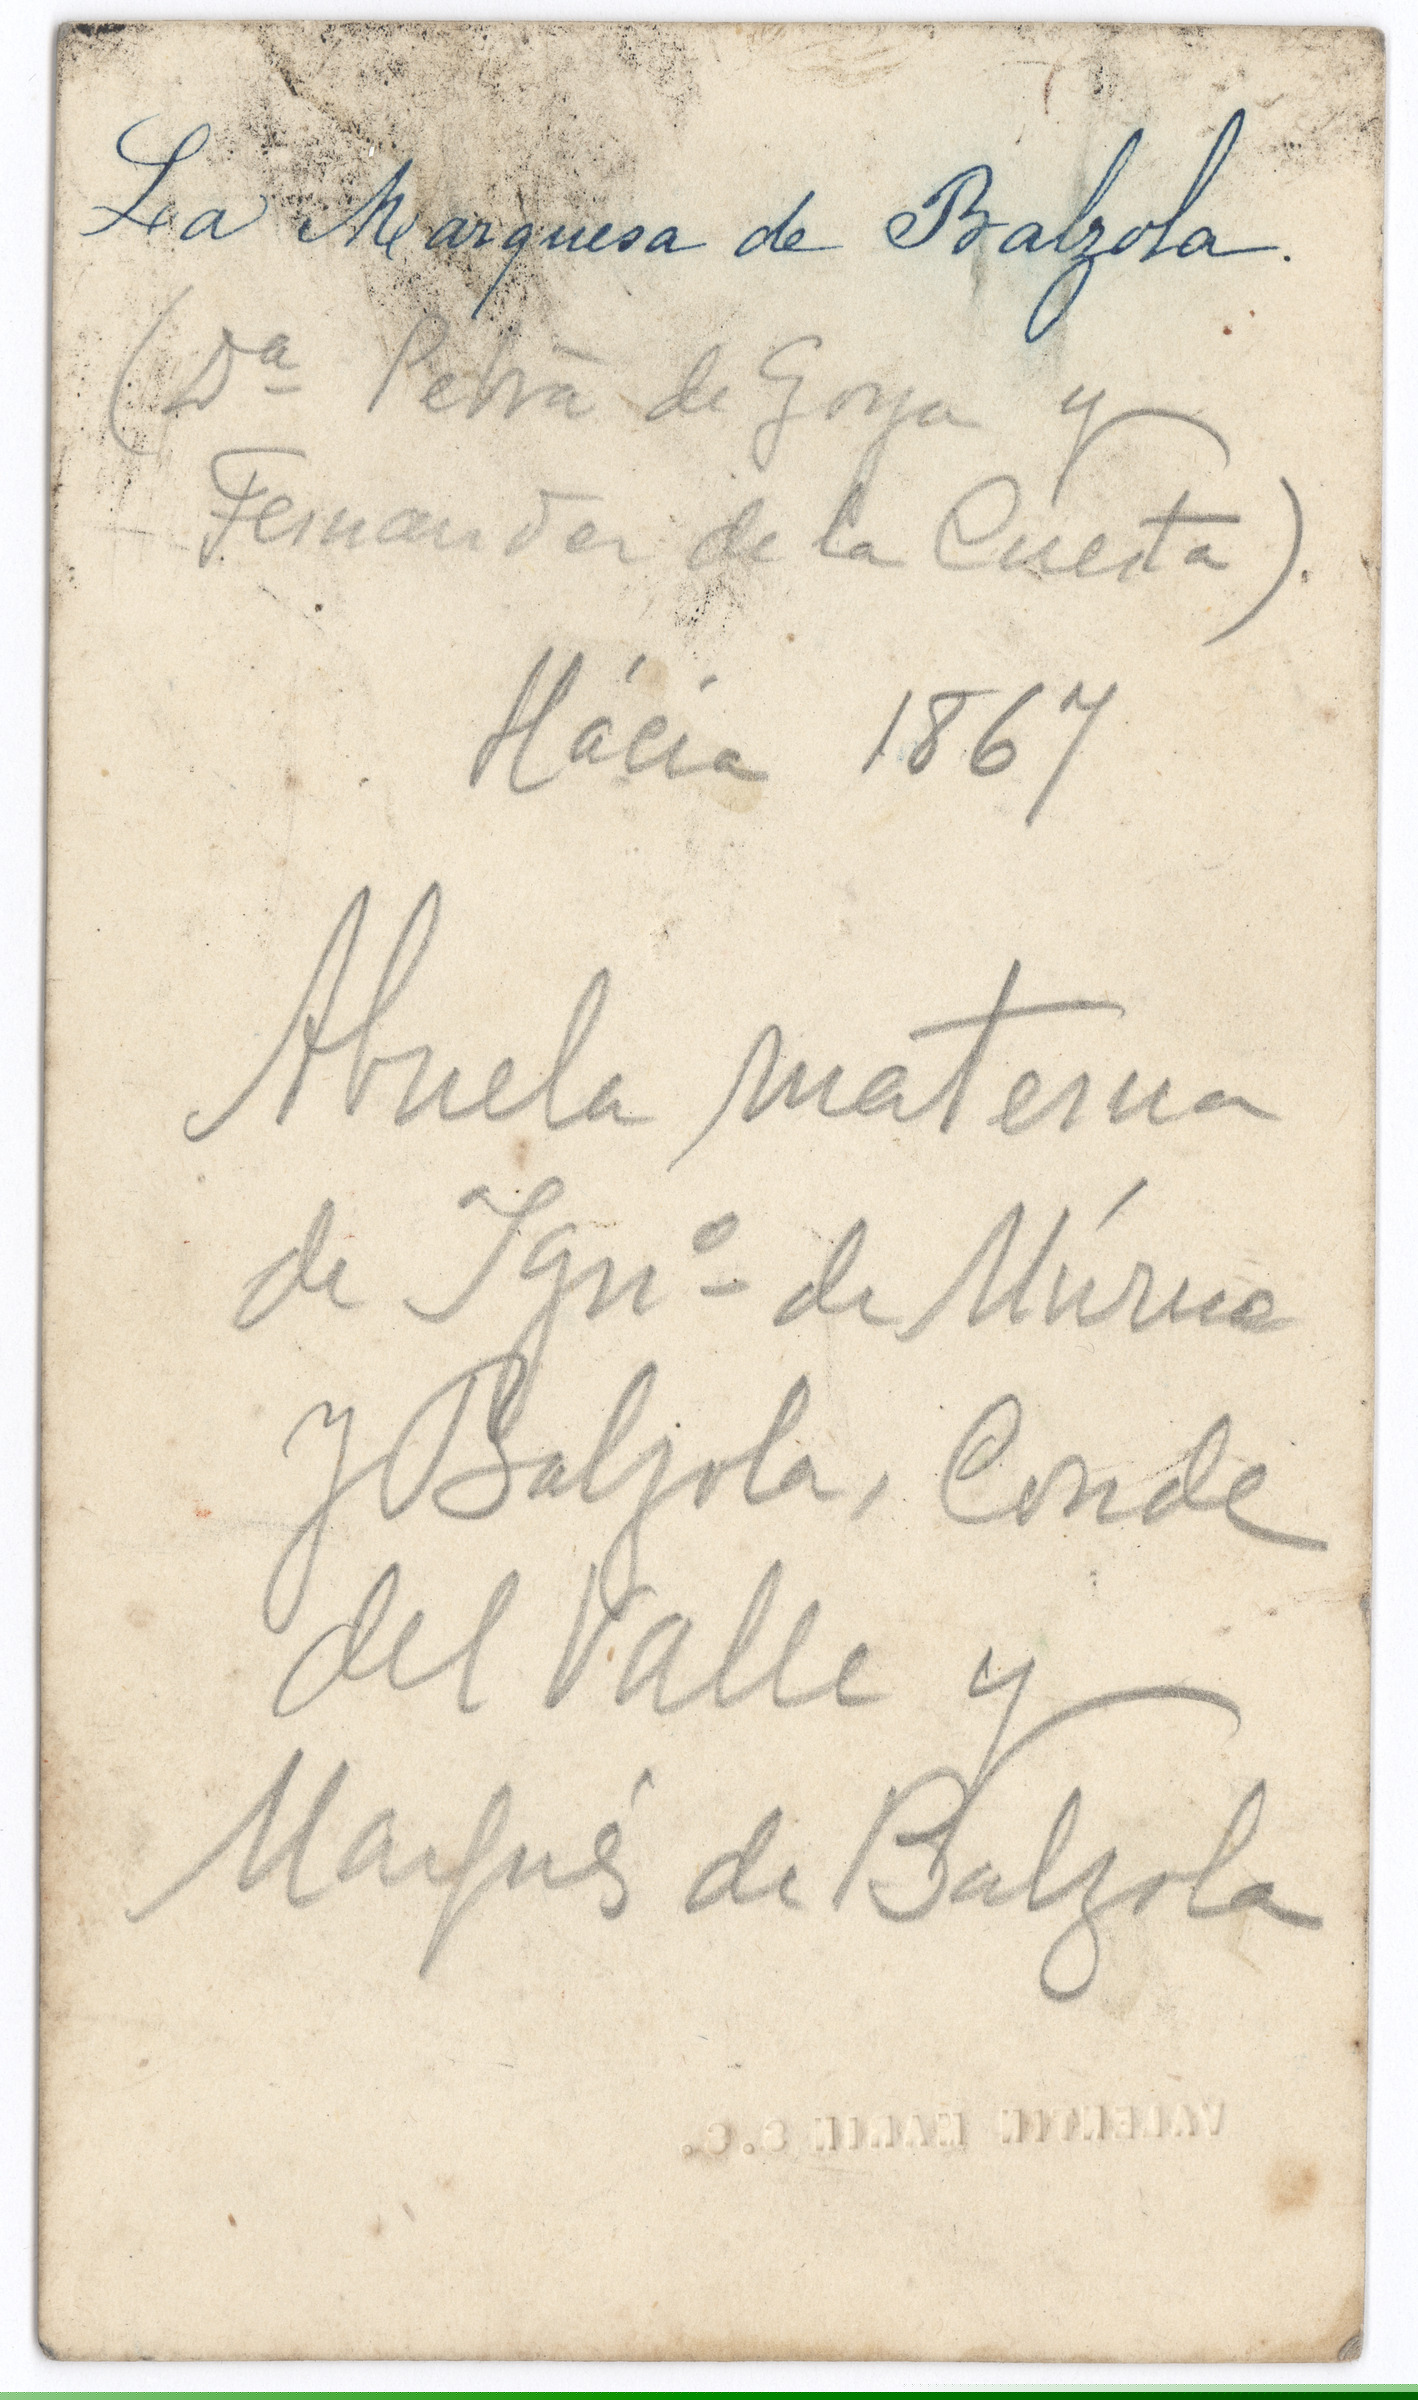 La Marquesa de Balzola.
(Dª Petra de Goya y
Fernandez de la Cuesta).
Hácia 1867
Abuela materna
de Ignº de Múrua
y Balzola, Conde
del Valle y
Marqués de Balzola
VALENTIN MARIN S.S.